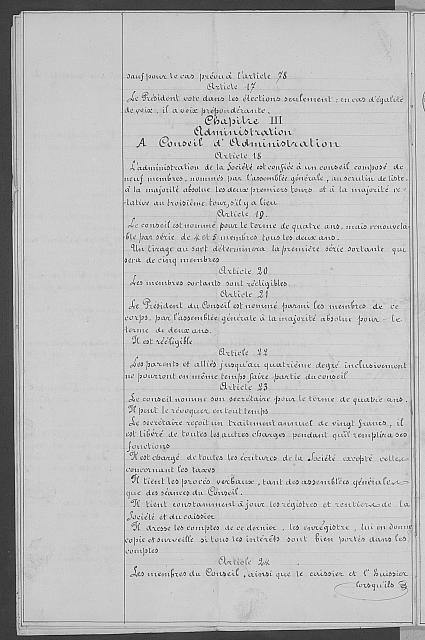 sauf pour le cas prévu à l'article 78
Article 17
Le Président vote dans les élections seulement; en cas d'égalité
de voix, il a voix prépondérante.
Chapitre III
Administration
A Conseil d'Administration
Article 18
L'administration de la Société est confiée à un conseil composé de
neuf membres, nommés par l'assemblée générale, au scrutin de liste,
à la majorité absolue les deux premiers tours et à la majorité re-
lative au troisième tour, s'il y a lieu
Article 19.
Le conseil est nommé pour le terme de quatre ans, mais renouvela-
ble par série de 4 et 5 membres tous les deux ans.
Un tirage au sort déterminera la première série sortante qui
sera de cinq membres
Article 20
Les membres sortants sont rééligibles
Article 21
Le Président du Conseil est nommé parmi les membres de ce
corps, par l'assemblée générale à la majorité absolue pour le
terme de deux ans.
Il est rééligible
Article 22
Les parents et alliés jusqu'au quatrième degré inclusivement
ne pourront en même temps faire partie du conseil
Article 23
Le conseil nomme son secrétaire pour le terme de quatre ans.
Il peut le révoquer en tout temps
Le secrétaire reçoit un traitement annuel de vingt francs, il
est libéré de toutes les autres charges pendant qu'il remplira ses
fonctions
Il est chargé de toutes les écritures de la Société excepté celles
concernant les taxes
Il tient les procès verbaux, tant des assemblées générales
que des séances du Conseil.
Il tient constamment à jour les régistres et rentiers de la
Société et du caissier
Il dresse les comptes de ce dernier, les enregistre, lui en donne
copie et surveille si tous les intérêts sont bien portés dans les
comptes
Article 24
Les membres du Conseil, ainsi que le caissier et l'huissier
lorsqu'ils